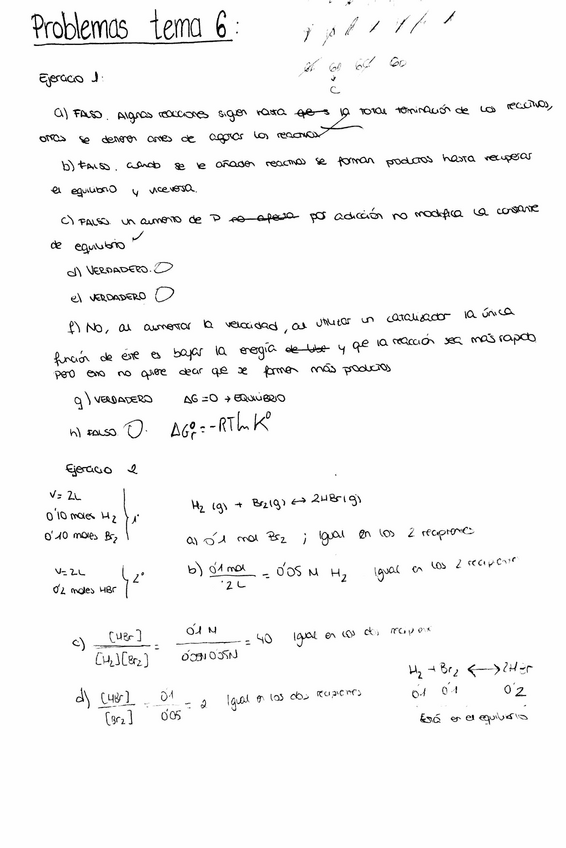 Problemas tema 6:
Ejercicio 1:
a) FALSO. Algunas reacciones siguen hasta la total terminación de los reactivos,
otras se detienen antes de agotar los reactivos
b) FALSO. cuando se le añaden reactivos se forman productos hasta recuperar
el equilibrio y viceversa.
c) FALSO un aumento de P no afecta por adicción no modifica la constante
de equilibrio
d) VERDADERO.
e) VERDADERO
f) No, al aumentar la velocidad, al utilizar un catalizador la única
función de éste es bajar la energía y qe la reacción sea más rapido
pero eso no quiere decir que se formen más productos
g) VERDADERO ΔG = 0 → EQUILIBRIO
h) FALSO ΔG°r = -RT Ln K°
Ejercicio 2
V = 2L
0'10 moles H2
0'10 moles Br2
1º
H2 (g) + Br2(g) ↔ 2HBr(g)
a) 0'1 mol Br2 ; Igual en los 2 recipientes
V = 2L
0'2 moles HBr
2º
b) 0'1 mol / 2L = 0'05 M H2 Igual en los 2 recipiente
c) [HBr] / [H2][Br2] = 0'1 M / = 40 Igual en los dos
d) [HBr] / [Br2] = 0'1 / 0'05 = 2 Igual en los dos recipientes
H2 + Br2 ↔ 2HBr
0'1 0'1 0'2
Está en el equilibrio